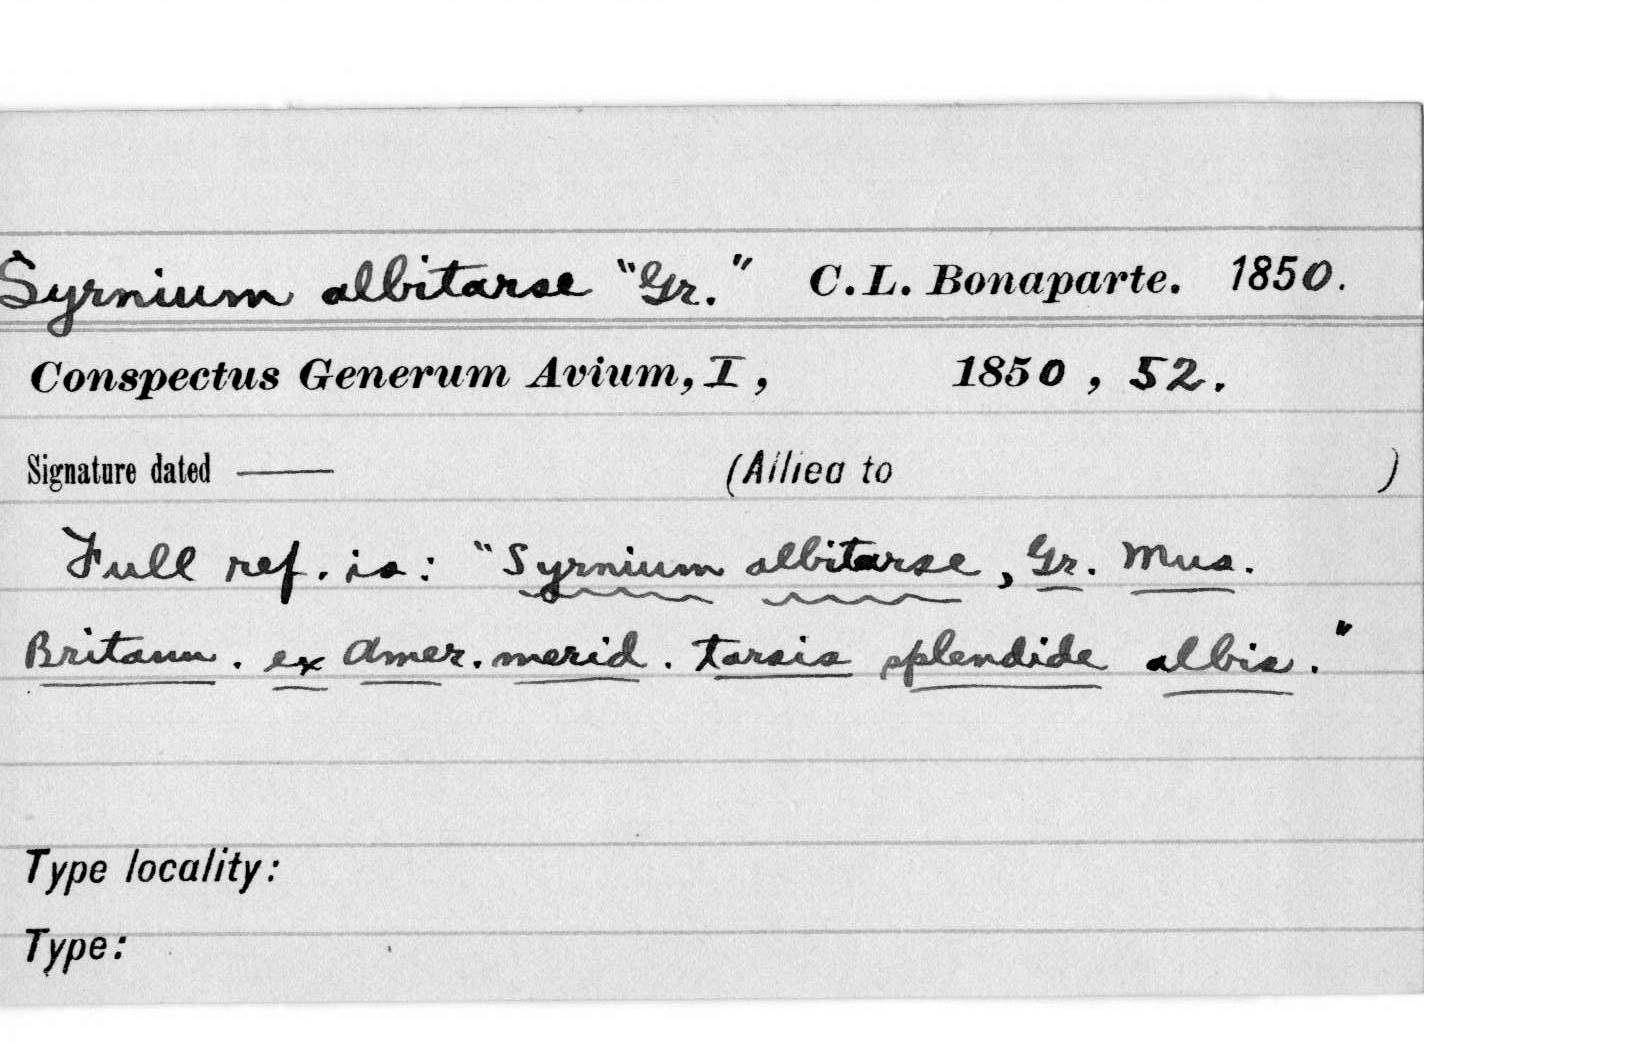 Syrnium albitarse "Gr." C.L. Bonaparte. 1850.
Conspectus Generum Avium, I, 1850, 52.
Signature dated — (Allied to )
Full ref. is: "Syrnium albitarse, Gr. Mus.
Britann. ex Amer. merid. tarsis splendide albis."
Type locality:
Type: